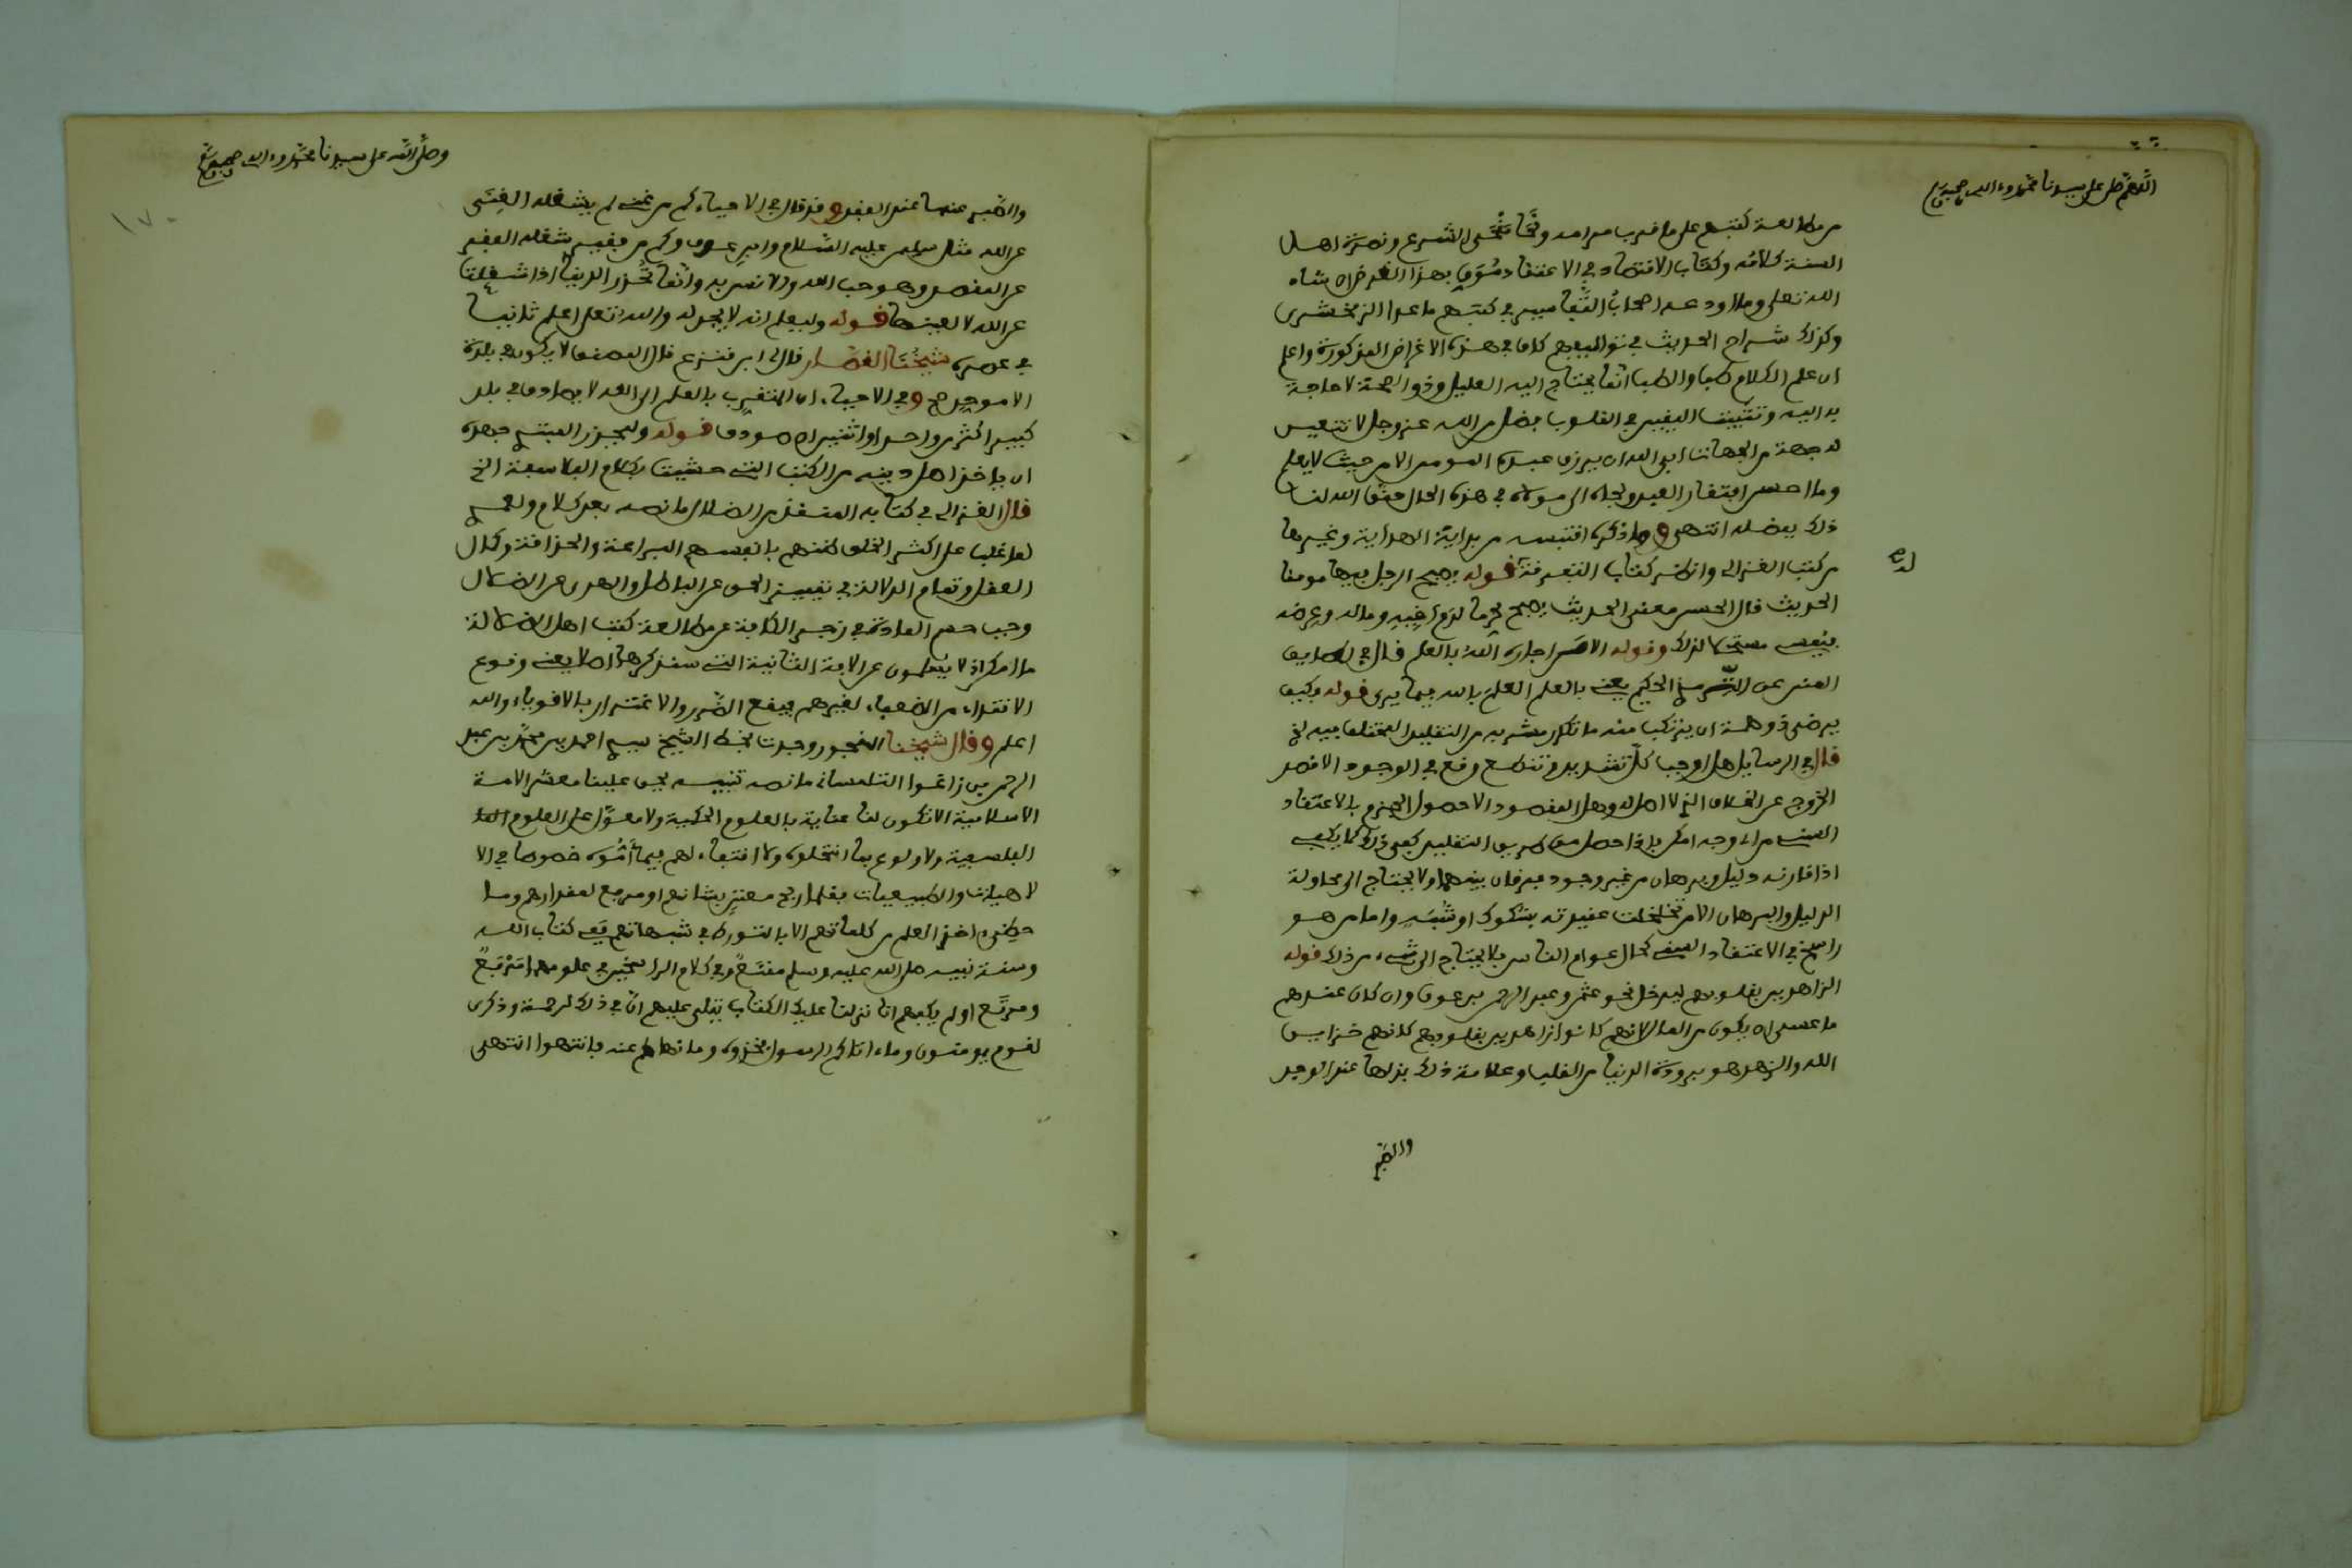 اللهم صل على سيدنا محمد وءاله وصحبه
من مطالعة كتبهم على ما قرب مرامه ونحا منحى الشرع ونصرة اهل
السنة كلامه وكتاب الاقتصاد في الاعتقاد بهذا الغرض ان شاء
الله تعلى وما اودعه اصحاب التفاسير في كتبهم ما عدا الزمخشري
وكذلك شراح الحديث في تواليفهم كاف في هذه الاغراض المذكورة واعلم
ان علم الكلام كما والطب انما يحتاج اليه العليل وذو الصحة لا حاجة
به اليه وتثبيت اليقين في القلوب بفضل من الله عز وجل لا تتعين
له جهة من الجهات ابى الله ان يرزق عبده المومن الا من حيث لا يعلم
وما احسن افتقار العبد ولجاه الى مولاه في هذه الحال حقق الله لنا
ذلك بفضله انتهى وما ذكره اقتبسه من بداية الهداية وغيرها
من كتب الغزالي وانظر كتاب التفرقة قوله يصبح الرجل فيها مومنا
الحديث قال الحسن معنى الحديث يصبح محرما لدم اخيه وماله وعرضه
ويمسي مستحلا لذلك وقوله الا من اجاره الله بالعلم قال في
عن الترمذي الحكيم يعني بالعلم العلم بالله فيما يرى قوله وكيف
يرضى ذو همة ان يرتكب منه ما تكدر مشربه من التقليد المختلف فيه الخ
قال في الرسايل هل اوجب كل تشديد وتنطع وقع في الوجود الا قصد
الخروج عن الخلاف الذي لا اصل له وهل المقصود الا حصول الجزم بالاعتقاد
السني من اي وجه امكن فاذا حصل من طريق التقليد كفى ذلك كما يكفي
اذا قارنه دليل وبرهان من غير وجود فرقان بينهما ولا يحتاج الى محاولة
الدليل والبرهان الا من تخلخلت عقيدته بشكوك او شبه واما من هو
راسخ في الاعتقاد السني كحال عوام الناس فلا يحتاج الى شيء من ذلك قوله
الزاهدين بقلوبهم ليدخل نحو عثمن وعبد الرحمن بن عوف وان كان عندهم
ما عسى ان يكون من المال لانهم كانوا زاهدين بقلوبهم كانهم خزاين
الله والزهد هو برودة الدنيا من القلب وعلامة ذلك بذلها عند الوجد
والصبر
وصلى الله على سيدنا محمد وءاله وصحبه
١٧٠
والصبر عنها عند الفقد وقد قال في الاحياء كم من غني لم يشغله الغنى
عن الله مثل سليمن عليه السلام وابن عوف وكم من فقير شغله الفقر
عن المقصد وهو حب الله والانس به وانما تحذر الدنيا اذا شغلت
عن الله لا لعينها قوله وليعلم انه لا يجد له والله تعلى اعلم ثانيا
في عصره شيخنا القصار قال لي ابن قنزع قال المصنف لا يكون في بلدة
الا موحد صح وفي الاحياء ان المتقرب بالعلم الى الله لا يصادف في بلد
كبير اكثر من واحد او اثنين ان صودف قوله وليحذر المبتدي جهده
ان ياخذ اصل دينه من الكتب التي حشيت بكلام الفلاسفة الخ
قال الغزالي في كتابه المنقذ من الضلال ما نصه بعد كلام ولعمري
لما غلب على اكثر الخلق ظنهم بانفسهم البراعة والحذاقة وكمال
العقل وتمام الدلالة في تمييز الحق عن الباطل والهدى عن الضلال
وجب حسم المادة في زجر الكافة عن مطالعة كتب اهل الضلالة
ما امكن اذ لا يسلمون عن الافة الثانية التي سنذكرها اصلا يعني وقوع
الاقتداء من الضعفاء لغيرهم فيقع الضرر والاغترار بالاقوياء والله
اعلم وقال شيخنا المنجور وجدت بخط الشيخ سيدي احمد بن محمد بن عبد
الرحمن بن زاغو التلمساني ما نصه تنبيه يحق علينا معشر الامة
الاسلامية الا تكون لنا عناية بالعلوم الحكمية ولا معول على العلوم
الفلسفية ولا ولوع بما انتحلوه ولا اقتفاء لهم فيما خصوصا في الا
لاهيات والطبيعيات فقلما ربح معتن بشانهم او مرجع لمقدارهم وما
حظي من اخذ العلم من كلماتهم الا بالتورط في شبهاتهم ففي كتاب الله
وسنة نبيه صلى الله عليه وسلم مقنع وفي كلام الراسخين في علومهما مربع
ومرتع اولم يكفهم انا انزلنا عليك الكتاب يتلى عليهم ان في ذلك لرحمة وذكرى
لقوم يومنون وما ءاتاكم الرسول فخذوه وما نهاكم عنه فانتهوا انتهى